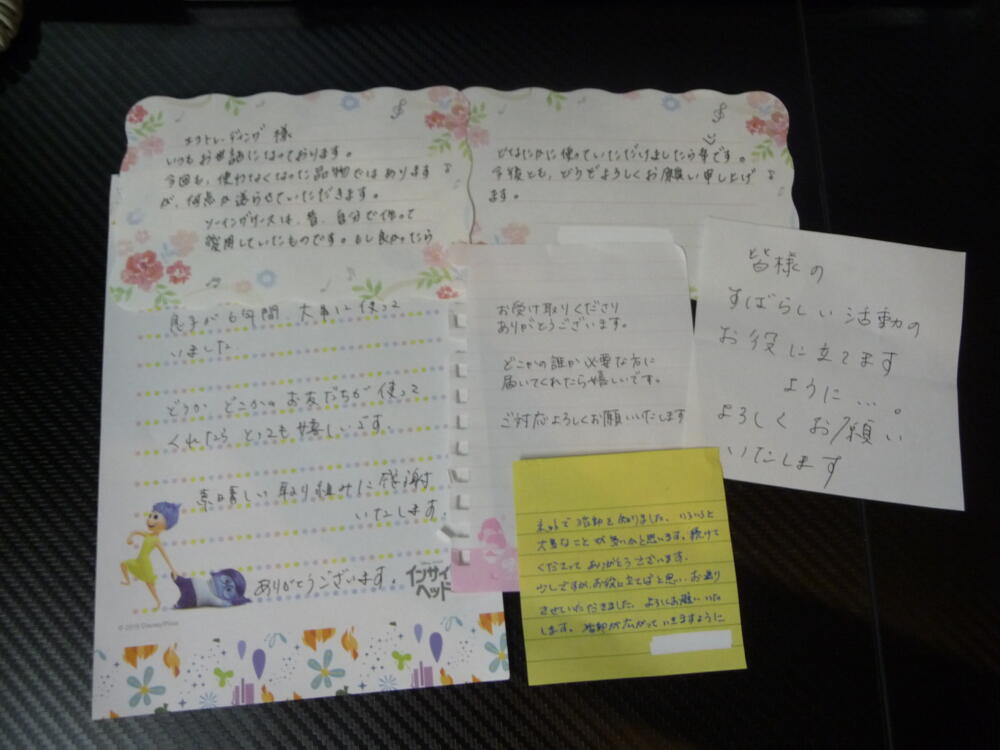 エコトレーディング 様
いつもお世話になっております。
今回も、使わなくなった品物ではあります
が、何点か送らせていただきます。
ソーイングケースは、昔、自分で作って
愛用していたものです。もし良かったら
どなたかに使っていただけましたら幸です。
今後とも、どうぞよろしくお願い申し上げ
ます。
息子が6年間、大事に使って
いました。
どうか どこかの お友だちが 使って
くれたら とっても 嬉しいです。
素晴しい 取り組みに 感謝
いたします。
ありがとうございます。
インサイ
ヘッド
© 2015 Disney/Pixar
お受け取りくださり
ありがとうございます。
どこかの誰か必要な方に
届いてくれたら嬉しいです。
ご対応よろしくお願いいたします
皆様の
すばらしい 活動の
お役に立てます
ように…。
よろしく お願い
いたします
ネットで活動を知りました。いろいろと
大変なことが多いかと思います。続けて
くださって ありがとうございます。
少しですが、お役に立てばと思い、お送り
させていただきました。よろしくお願いいた
します。活動が広がっていきますように